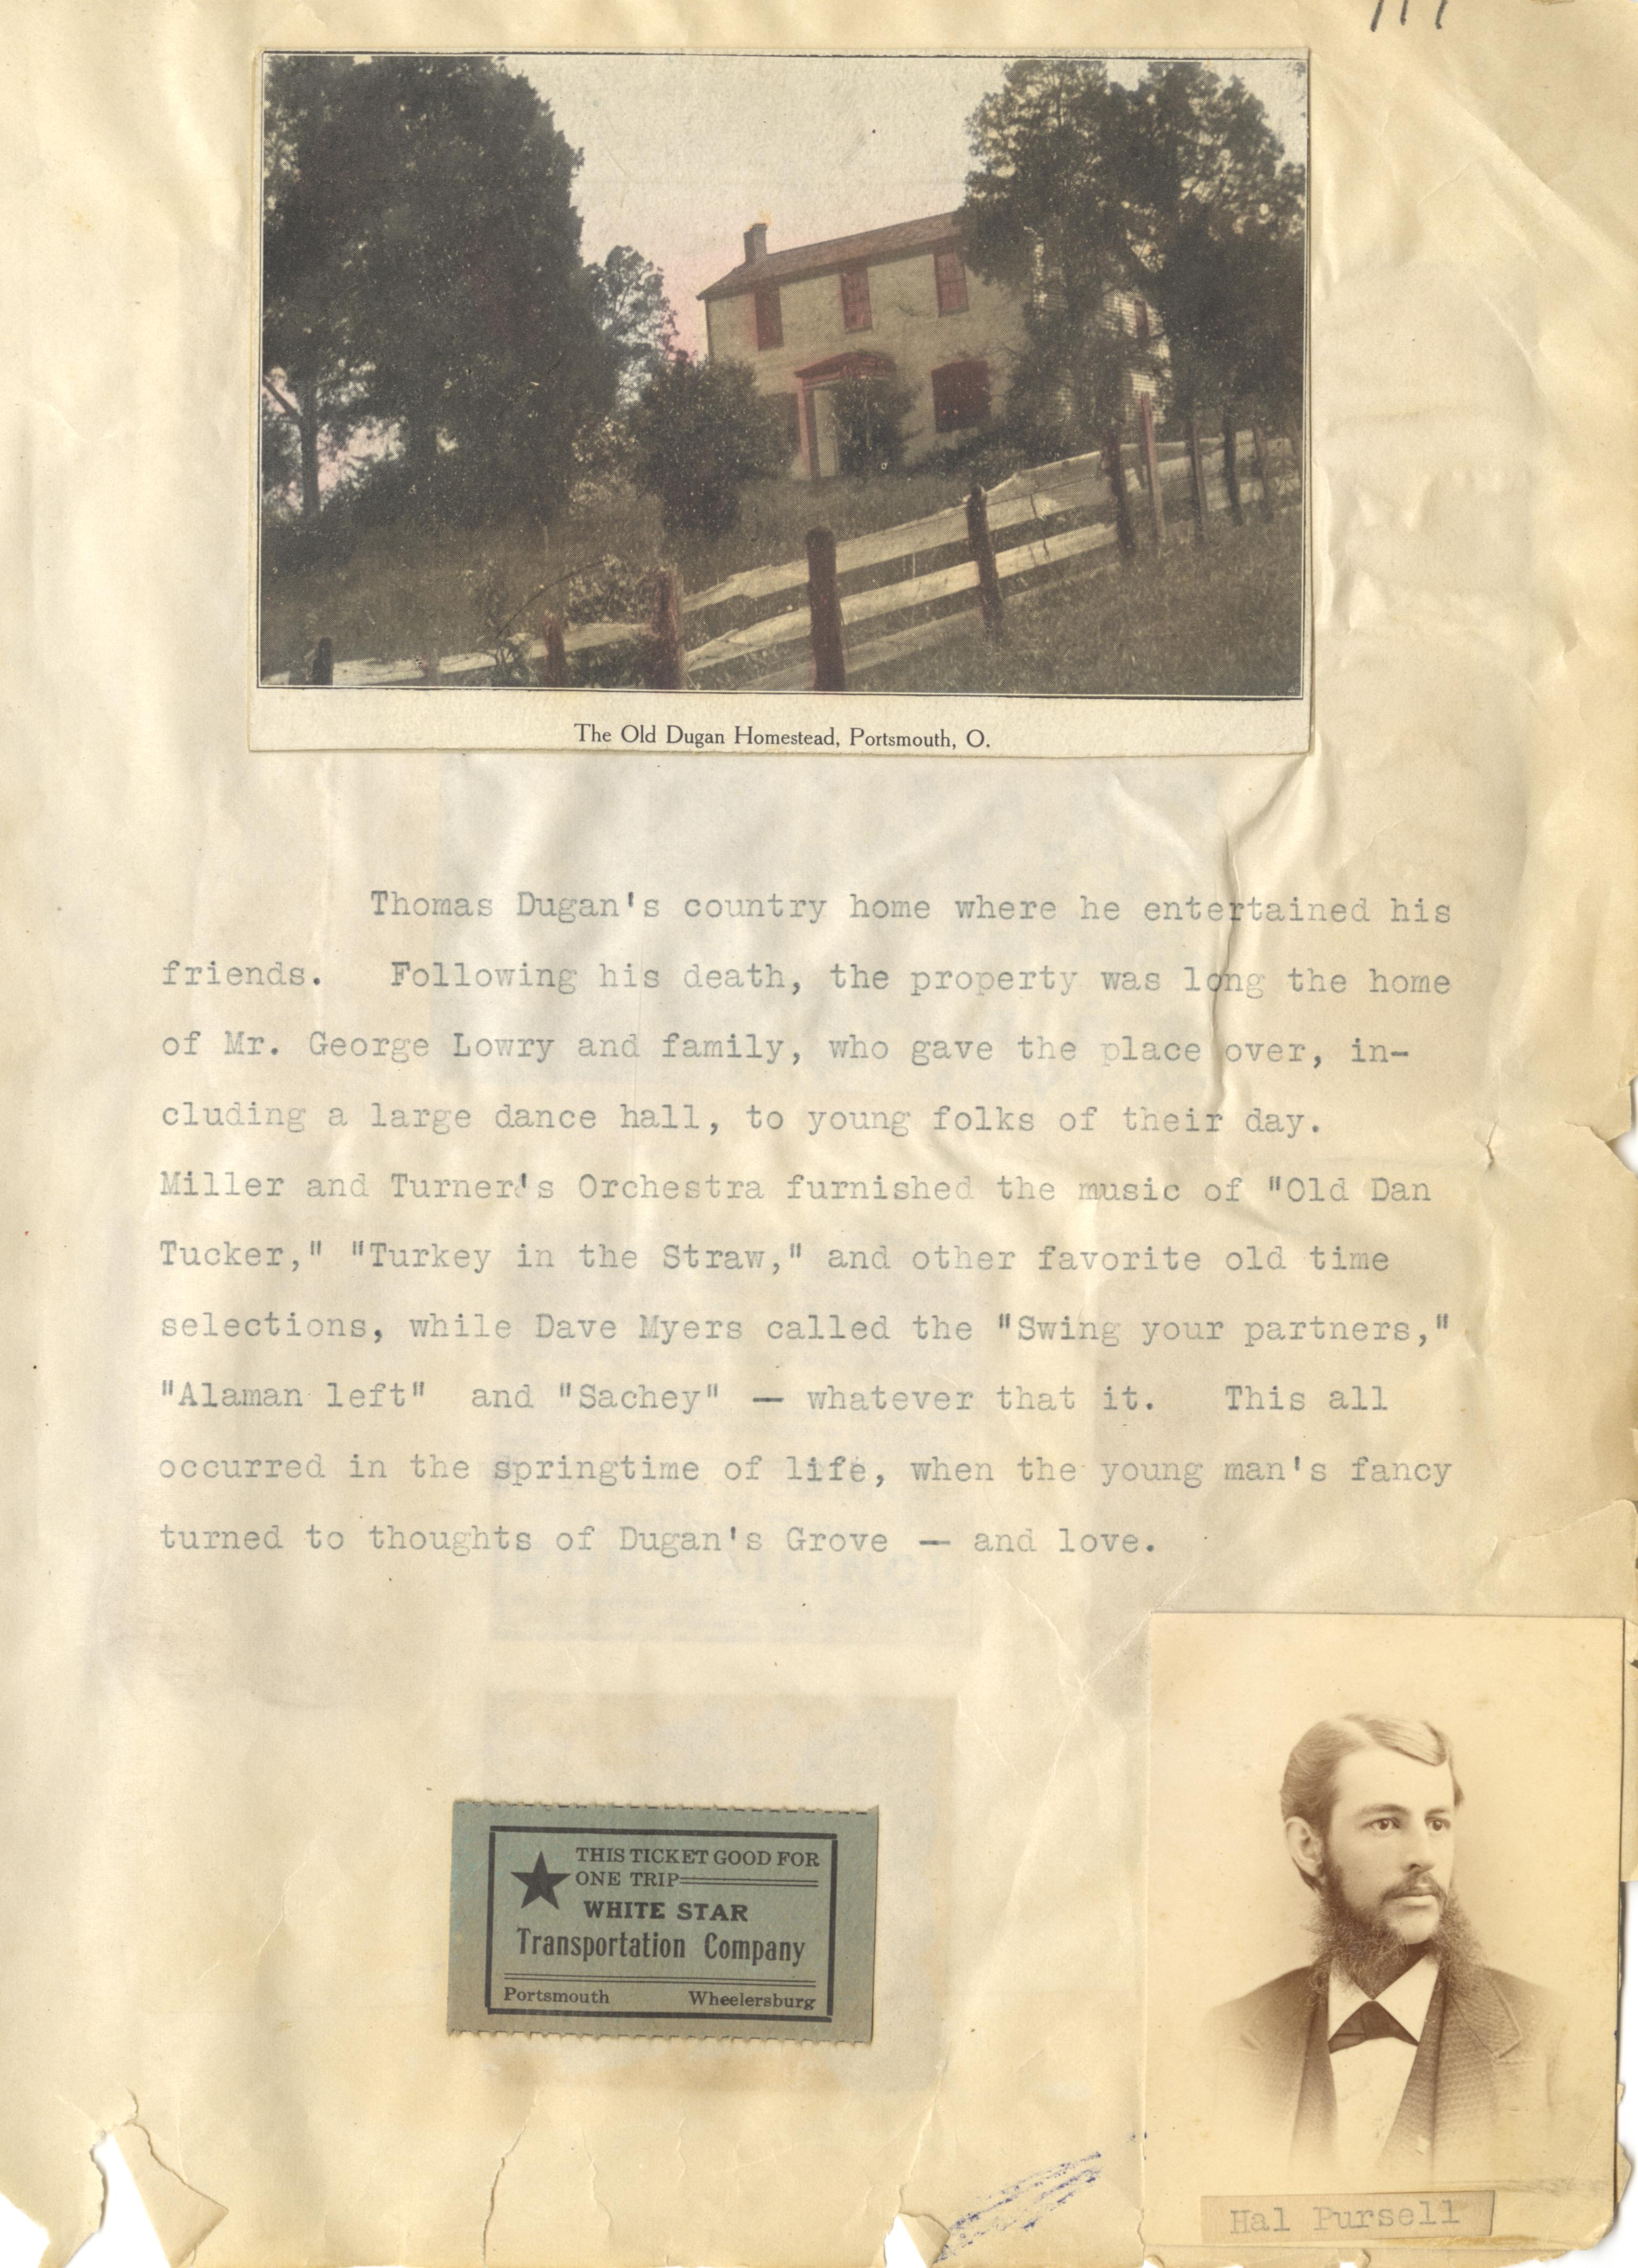 The Old Dugan Homestead, Portsmouth, O.
Thomas Dugan's country home where he entertained his
friends. Following his death, the property was long the home
of Mr. George Lowry and family, who gave the place over, in-
cluding a large dance hall, to young folks of their day.
Miller and Turner's Orchestra furnished the music of "Old Dan
Tucker," "Turkey in the Straw," and other favorite old time
selections, while Dave Myers called the "Swing your partners,"
"Alaman left" and "Sachey" — whatever that it. This all
occurred in the springtime of life, when the young man's fancy
turned to thoughts of Dugan's Grove — and love.
THIS TICKET GOOD FOR
ONE TRIP
WHITE STAR
Transportation Company
Portsmouth Wheelersburg
Hal Pursell